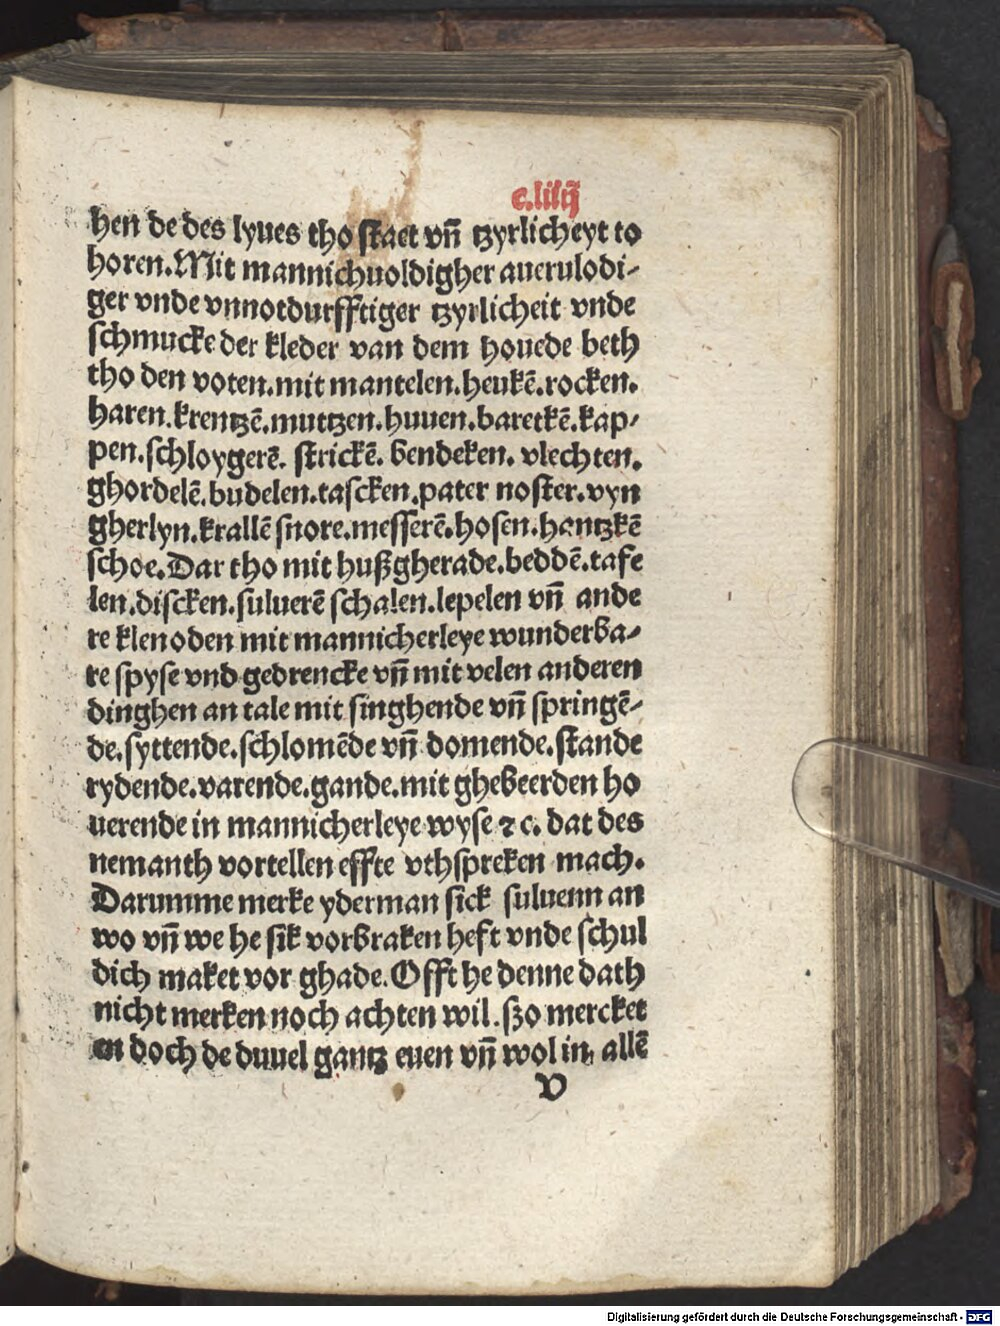 c.liiij
hen de des lyues tho staet vn̄ tzyrlicheyt to
horen. Mit mannichuoldigher auerulodi-
ger vnde vnnotdurfftiger tzyrlicheit vnde
schmucke der kleder van dem houede beth
tho den voten. mit mantelen. heukē. rocken.
haren. krentzē. muttzen. huuen. baretkē. kap-
pen. schloygerē. strickē. bendeken. vlechten.
ghordelē. budelen. tascken. pater noster. vyn
gherlyn. krallē snore. messerē. hosen. hantzkē
schoe. Dar tho mit hußgherade. beddē. tafe
len. discken. suluerē schalen. lepelen vn̄ ande
re klenoden mit mannicherleye wunderba-
re spyse vnd gedrencke vn̄ mit velen anderen
dinghen an tale mit singhende vn̄ springē-
de. syttende. schlomēde vn̄ domende. stande
rydende. varende. gande. mit ghebeerden ho
uerende in mannicherleye wyse ⁊ c. dat des
nemanth vortellen effte vthspreken mach.
Darumme merke yderman sick suluenn an
wo vn̄ we he sik vorbraken heft vnde schul
dich maket vor ghade. Offt he denne dath
nicht merken noch achten wil. szo mercket
en doch de duuel gantz euen vn̄ wol in, allē
v
Digitalisierung gefördert durch die Deutsche Forschungsgemeinschaft - DFG